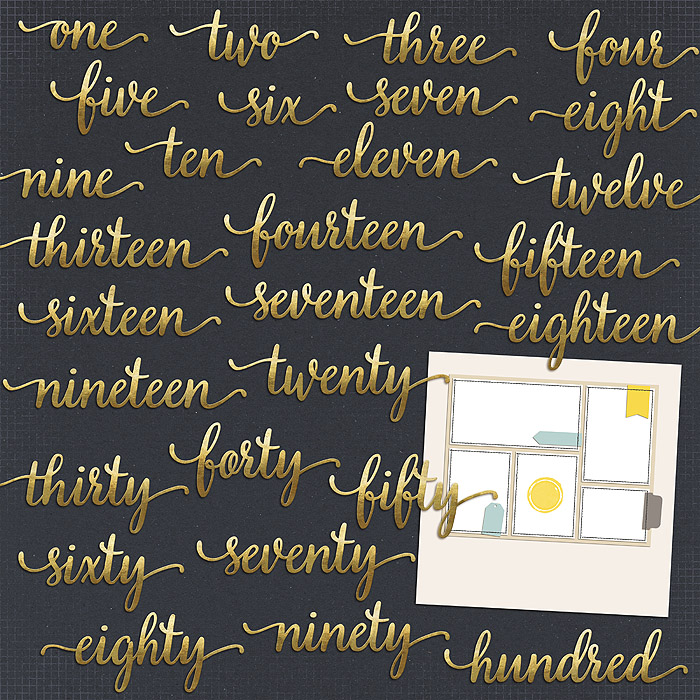 one two three four
five six seven eight
nine ten eleven twelve
thirteen fourteen fifteen
sixteen seventeen eighteen
nineteen twenty
thirty forty fifty
sixty seventy
eighty ninety hundred